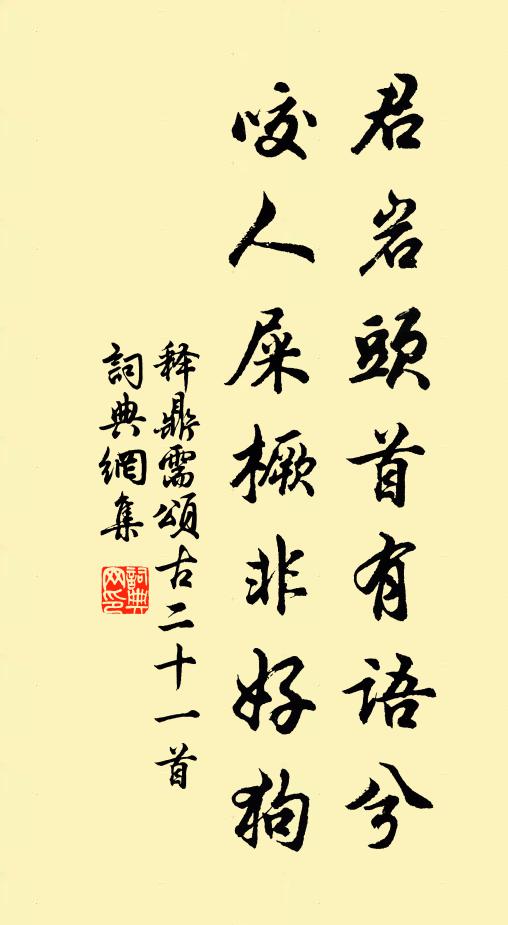 君岩頭首有語兮
咬人屎橛非好狗
释鼎需頌古二十一首
詞典網集
詞典网印